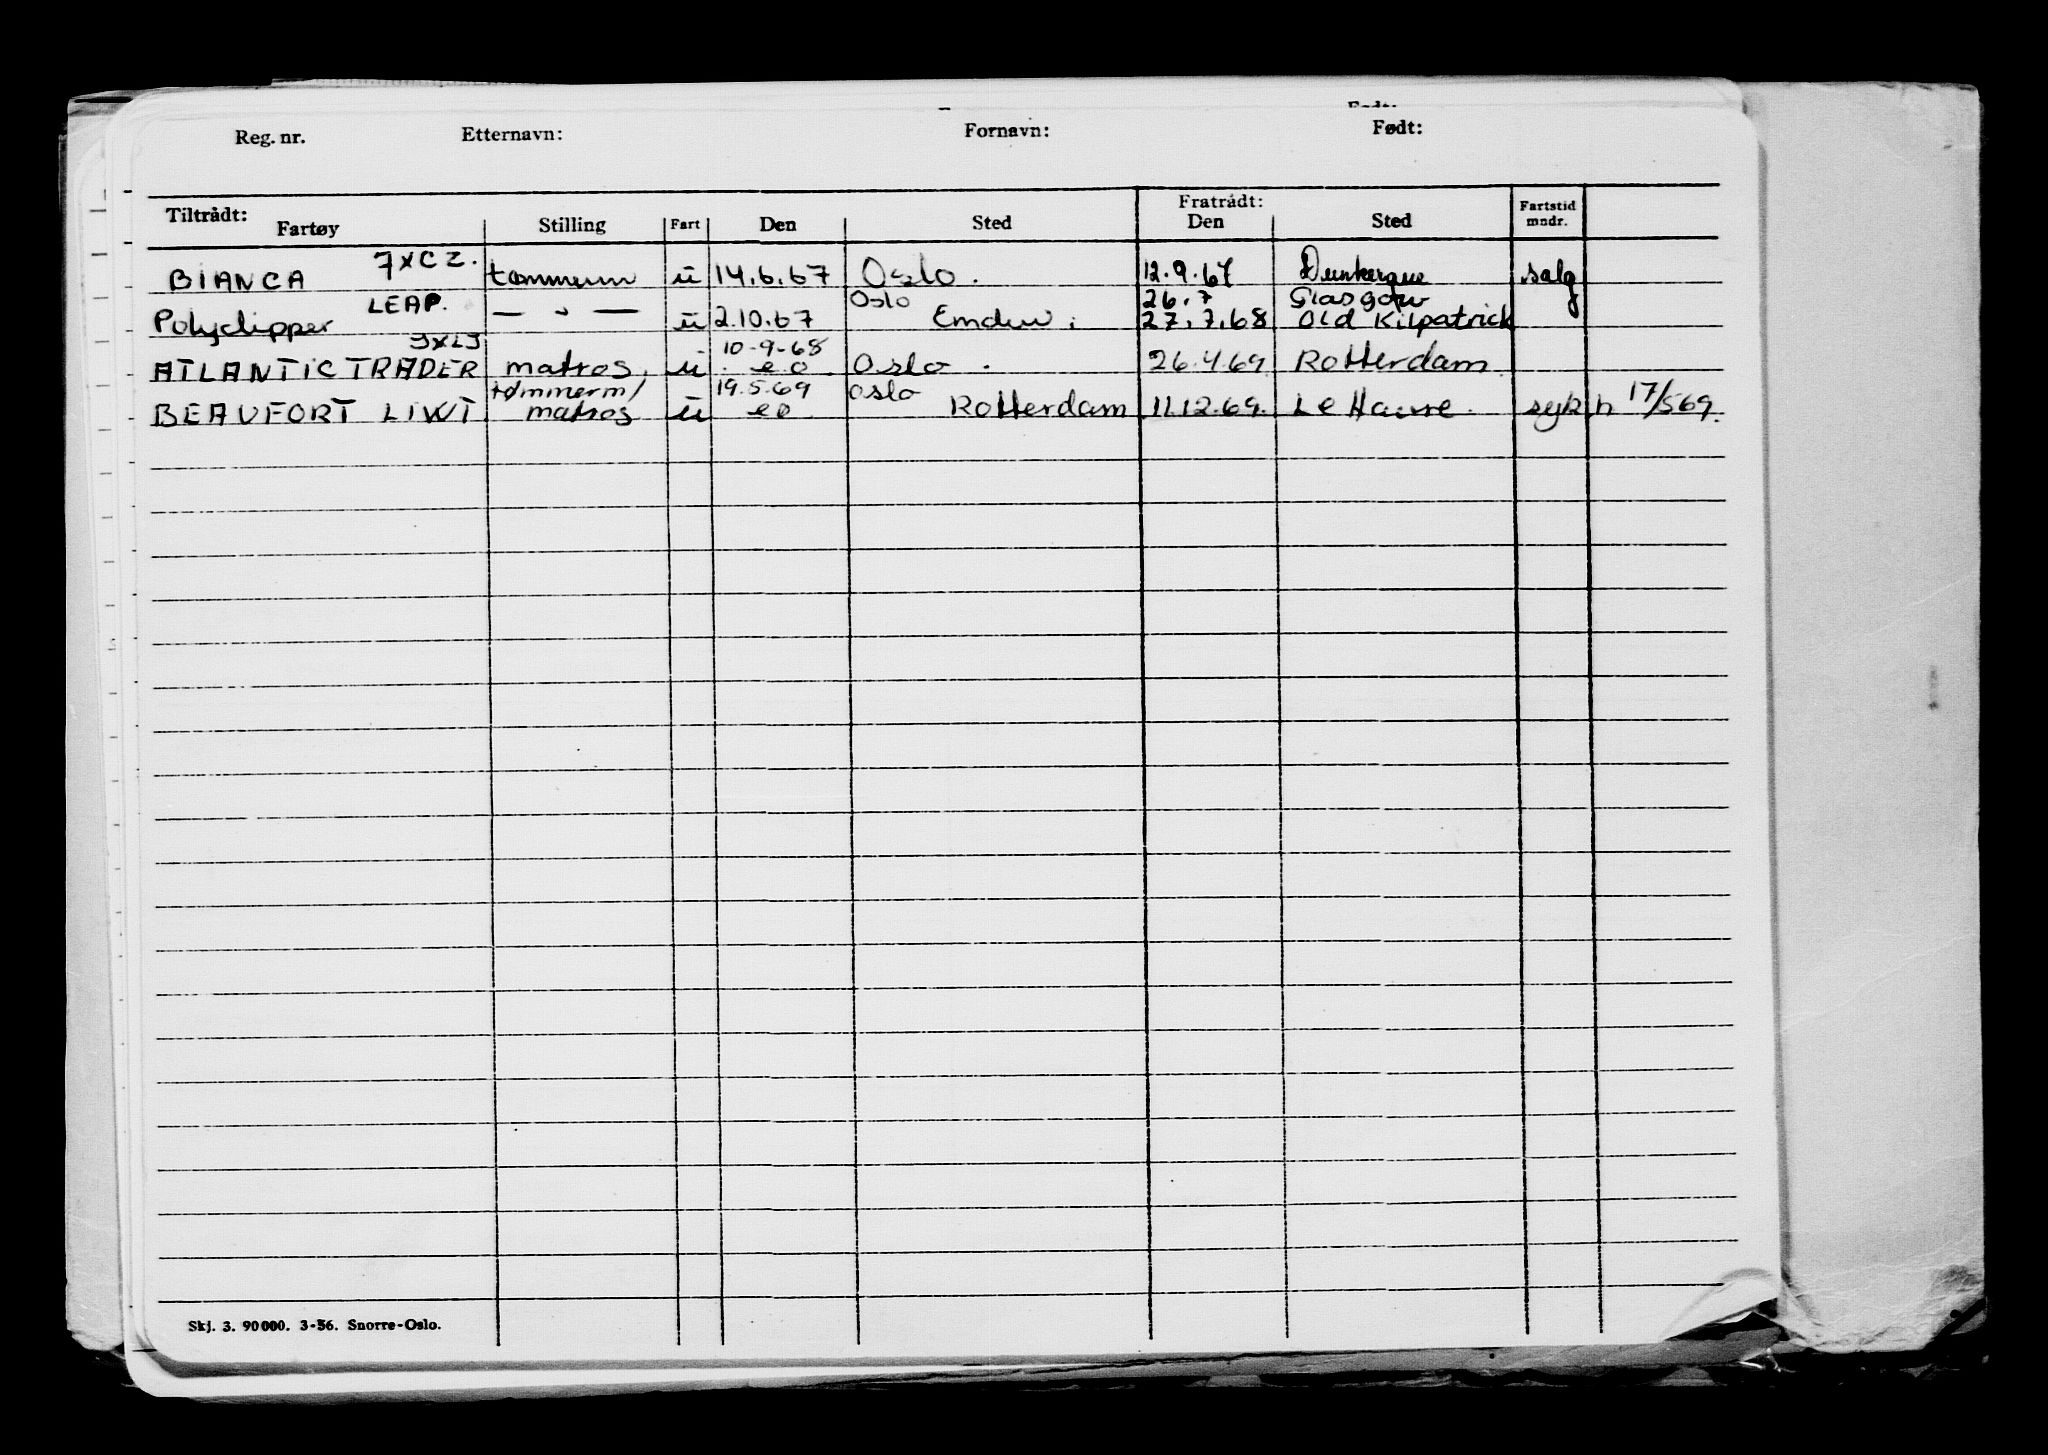 Reg. nr. Etternavn: Fornavn: Født:
Tiltrådt: Fratrådt:
Fartøy Stilling Fart Den Sted Den Sted Fartstid mndr.
BIANCA 7XCZ. tømmerm u 14.6.67 Oslo. 12.9.67 Dunkerque salg
LEAP. Oslo 26.7 Glasgow
Polyclipper — " — u 2.10.67 Emden. 27.7.68 Old Kilpatrick
3XLJ 10-9-68
ATLANTIC TRADER matros. u eo Oslo. 26.4.69 Rotterdam
tømmerm/ 19.5.69 Oslo
BEAUFORT LIWT matros u eo Rotterdam 11.12.69. Le Havre. syk h 17/569.
Skj. 3. 90000. 3-56. Snorre-Oslo.